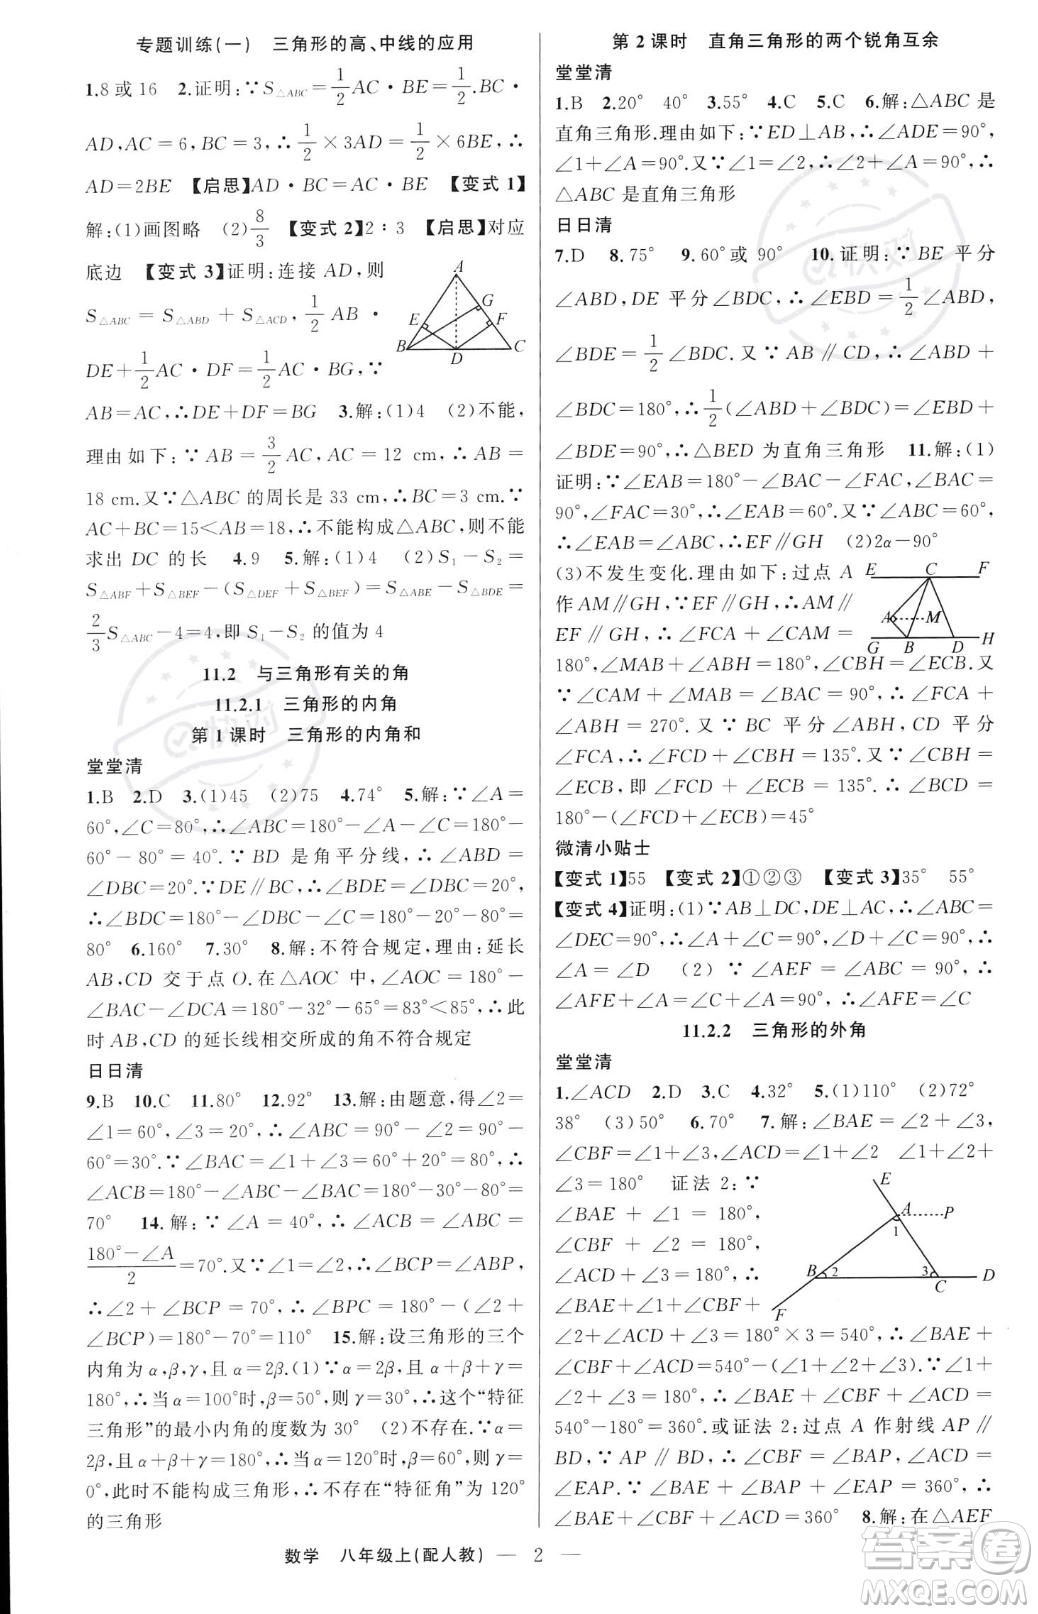 专题训练(一) 三角形的高、中线的应用
1.8 或 16 2.证明:∵S△ABC=1/2 AC·BE=1/2 BC·
AD,AC=6,BC=3,∴1/2×3AD=1/2×6BE,∴
AD=2BE 【启思】AD·BC=AC·BE 【变式 1】
解:(1)画图略 (2)8/3 【变式 2】2∶3 【启思】对应
底边 【变式 3】证明:连接 AD,则
S△ABC=S△ABD+S△ACD,∴1/2 AB·
DE+1/2 AC·DF=1/2 AC·BG,∵
AB=AC,∴DE+DF=BG 3.解:(1)4 (2)不能,
理由如下:∵AB=3/2 AC,AC=12 cm,∴AB=
18 cm.又∵△ABC 的周长是 33 cm,∴
AC+BC=15<AB=18,∴不能构成△ABC,则不能
求出 DC 的长 4.9 5.解:(1)4 (2)S₁-S₂=
S△ABF+S△BEF-(S△DEF+S△BEF)=S△ABE-S△BDE=
2/3 S△ABC-4=4,即 S₁-S₂ 的值为 4
A
G
E
F
B
D
C
11.2 与三角形有关的角
11.2.1 三角形的内角
第 1 课时 三角形的内角和
堂堂清
1.B 2.D 3.(1)45 (2)75 4.74° 5.解:∵∠A=
60°,∠C=80°,∴∠ABC=180°-∠A-∠C=180°-
60°-80°=40°.∵BD 是角平分线,∴∠ABD=
∠DBC=20°.∵DE∥BC,∴∠BDE=∠DBC=20°,
∴∠BDC=180°-∠DBC-∠C=180°-20°-80°=
80° 6.160° 7.30° 8.解:不符合规定,理由:延长
AB,CD 交于点 O.在△AOC 中,∠AOC=180°-
∠BAC-∠DCA=180°-32°-65°=83°<85°,∴此
时 AB,CD 的延长线相交所成的角不符合规定
日日清
9.B 10.C 11.80° 12.92° 13.解:由题意,得∠2=
∠1=60°,∠3=20°,∴∠ABC=90°-∠2=90°-
60°=30°.∵∠BAC=∠1+∠3=60°+20°=80°,∴
∠ACB=180°-∠ABC-∠BAC=180°-30°-80°=
70° 14.解:∵∠A=40°,∴∠ACB=∠ABC=
180°-∠A/2=70°.又∵∠1=∠2,∴∠1+∠BCP=70°,
∴∠2+∠BCP=70°,∴∠BPC=180°-(∠2+
∠BCP)=180°-70°=110° 15.解:设三角形的三个
内角为 α,β,γ,且 α=2β.(1)∵α=2β,且 α+β+γ=
180°,∴当 α=100°时,β=50°,则 γ=30°,∴这个“特征
三角形”的最小内角的度数为 30° (2)不存在.∵α=
2β,且 α+β+γ=180°,∴当 α=120°时,β=60°,则 γ=
0°,此时不能构成三角形,∴不存在“特征角”为 120°
的三角形
第 2 课时 直角三角形的两个锐角互余
堂堂清
1.B 2.20° 40° 3.55° 4.C 5.C 6.解:△ABC 是
直角三角形.理由如下:∵ED⊥AB,∴∠ADE=90°,
∠1+∠A=90°.又∵∠1=∠2,∴∠2+∠A=90°,∴
△ABC 是直角三角形
日日清
7.D 8.75° 9.60°或 90° 10.证明:∵BE 平分
∠ABD,DE 平分∠BDC,∴∠EBD=1/2∠ABD,
∠BDE=1/2∠BDC.又∵AB∥CD,∴∠ABD+
∠BDC=180°,∴1/2(∠ABD+∠BDC)=∠EBD+
∠BDE=90°,∴△BED 为直角三角形 11.解:(1)
证明:∵∠EAB=180°-∠BAC-∠FAC,∠BAC=
90°,∠FAC=30°,∴∠EAB=60°.又∵∠ABC=60°,
∴∠EAB=∠ABC,∴EF∥GH (2)2α-90°
(3)不发生变化.理由如下:过点 A
作 AM∥GH,∵EF∥GH,∴AM∥
EF∥GH,∴∠FCA+∠CAM=
180°,∠MAB+∠ABH=180°,∠CBH=∠ECB.又
∵∠CAM+∠MAB=∠BAC=90°,∴∠FCA+
∠ABH=270°.又∵BC 平分∠ABH,CD 平分
∠FCA,∴∠FCD+∠CBH=135°,∴∠FCD+
∠ECB=135°,即∠FCD+∠ECB=∠BCD+
180°-(∠FCD+∠ECB)=45°
E
C
F
A
M
G
B
D
H
微清小贴士
【变式 1】55 【变式 2】①②③ 【变式 3】35° 55°
【变式 4】证明:(1)∵AB⊥DC,DE⊥AC,∴∠ABC=
∠DEC=90°,∴∠A+∠C=90°,∠D+∠C=90°,∴
∠A=∠D (2)∵∠AEF=∠ABC=90°,∴∠A+
∠AFE=∠C+∠A=90°,∴∠AFE=∠C
11.2.2 三角形的外角
堂堂清
1.∠ACD 2.D 3.C 4.32° 5.(1)110° (2)72°
38° (3)50° 6.70° 7.解:∠BAE=∠2+∠3,
∠CBF=∠1+∠3,∠ACD=∠1+∠2,∠1+∠2+
∠3=180° 证法 2:∵
∠BAE+∠1=180°,
∠CBF+∠2=180°,
∠ACD+∠3=180°,∴
∠BAE+∠1+∠CBF+
∠2+∠ACD+∠3=180°×3=540°,∴∠BAE+
∠CBF+∠ACD=540°-(∠1+∠2+∠3).∵∠1+
∠2+∠3=180°,∴∠BAE+∠CBF+∠ACD=
540°-180°=360°.或证法 2:过点 A 作射线 AP∥
BD.∵AP∥BD,∴∠CBF=∠BAP,∠ACD=
∠EAP.∵∠BAE+∠BAP+∠EAP=360°,∴
∠BAE+∠CBF+∠ACD=360° 8.解:在△AEF
E
A
P
1
B
2
3
C
D
F
数学 八年级上(配人教) — 2 —
答案圈
MXQE.COM